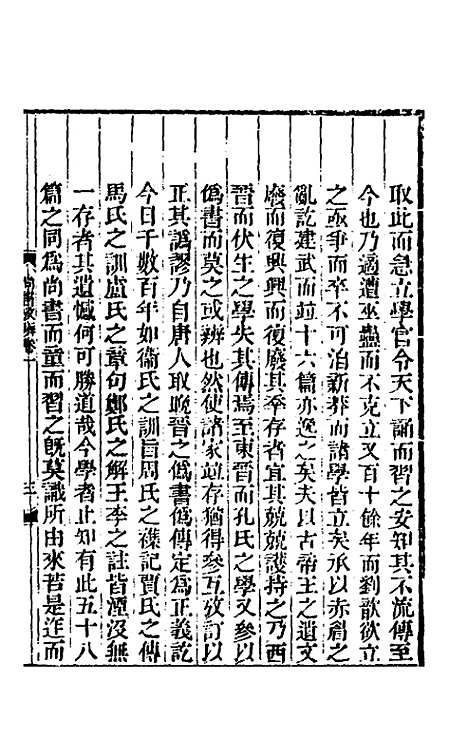 取此而急立學官令天下誦而習之安知其不流傳至
今也乃適遭巫蠱而不克立又百十餘年而劉歆欲立
之亟爭而卒不可洎新莽而諸學皆立矣承以赤眉之
亂訖建武而竝十六篇亦逸之矣夫以古帝王之遺文
廢而復興興而復廢其幸存者宜其兢兢護持之乃西
晉而伏生之學失其傳焉至東晉而孔氏之學又參以
僞書而莫之或辨也然使諸家竝存猶得參互攷訂以
正其譌謬乃自唐人取晚晉之僞書僞傳定爲正義訖
今日千數百年如衞氏之訓旨周氏之襍記賈氏之傳
馬氏之訓盧氏之章句鄭氏之解王李之註皆湮沒無
一存者其遺憾何可勝道哉今學者止知有此五十八
篇之同爲尚書而童而習之旣莫識所由來若是迮而
尚書